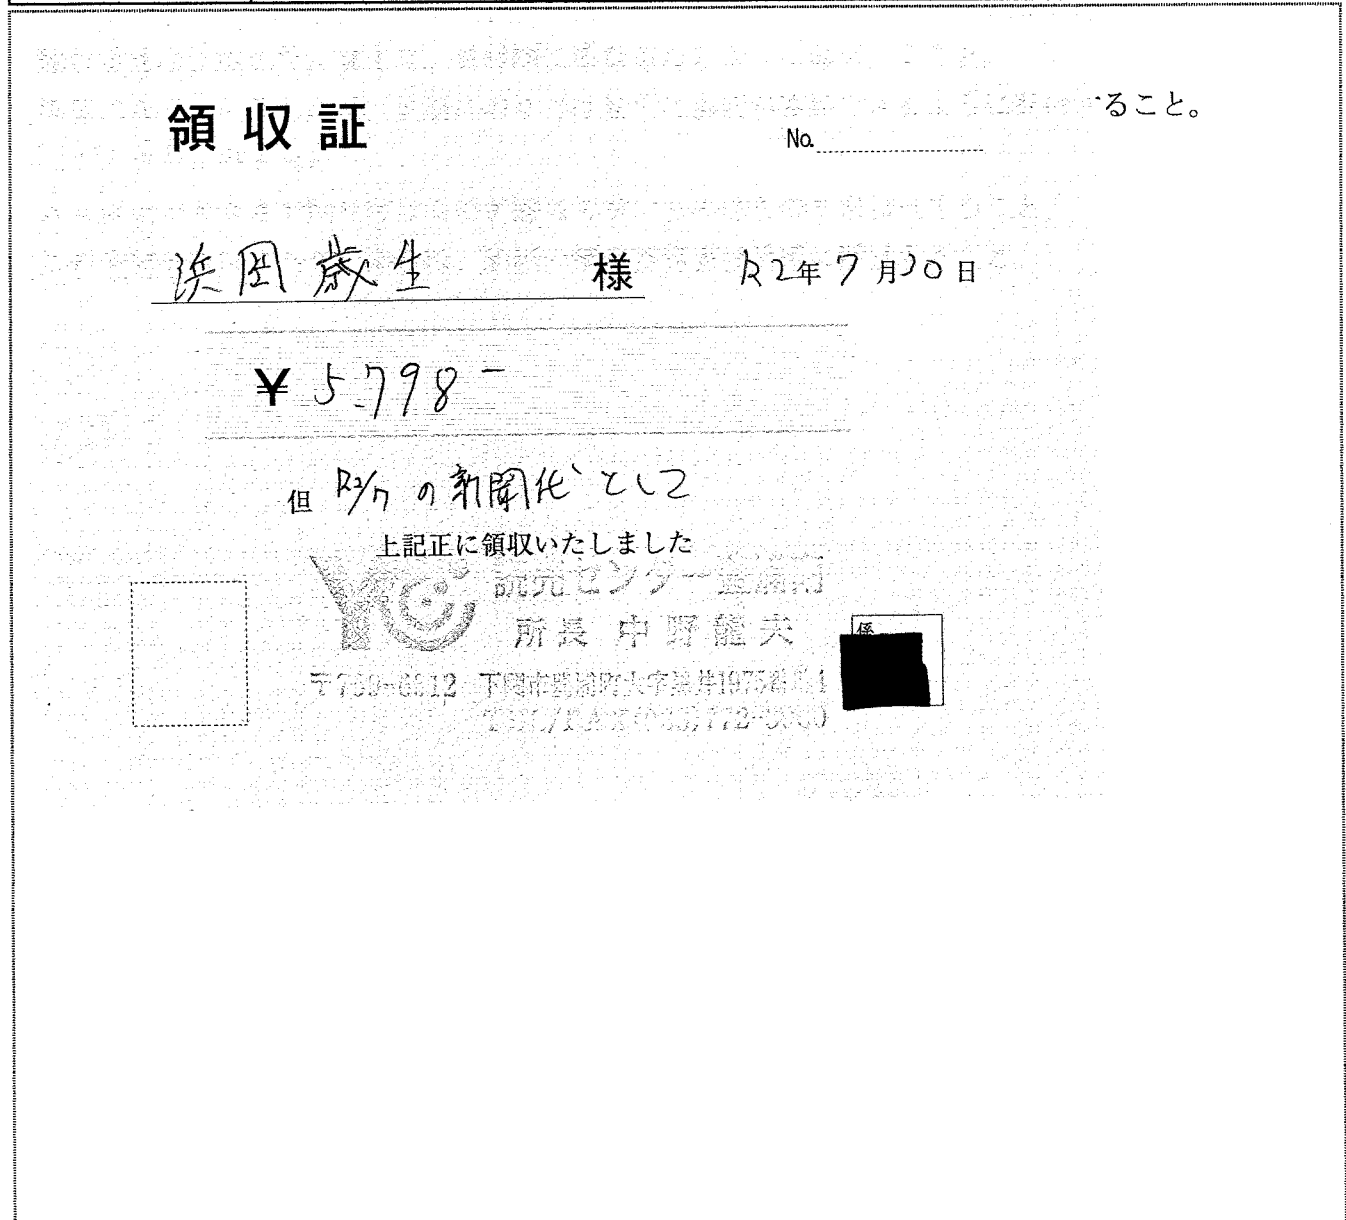 ること。
領収証
No.
浜岡歳生 様 R2年7月30日
¥5,798-
但 R2/7の新聞代として
上記正に領収いたしました
YC 読売センター
所長 中野龍夫
下関市豊浦町大字黒井1975番地1
係